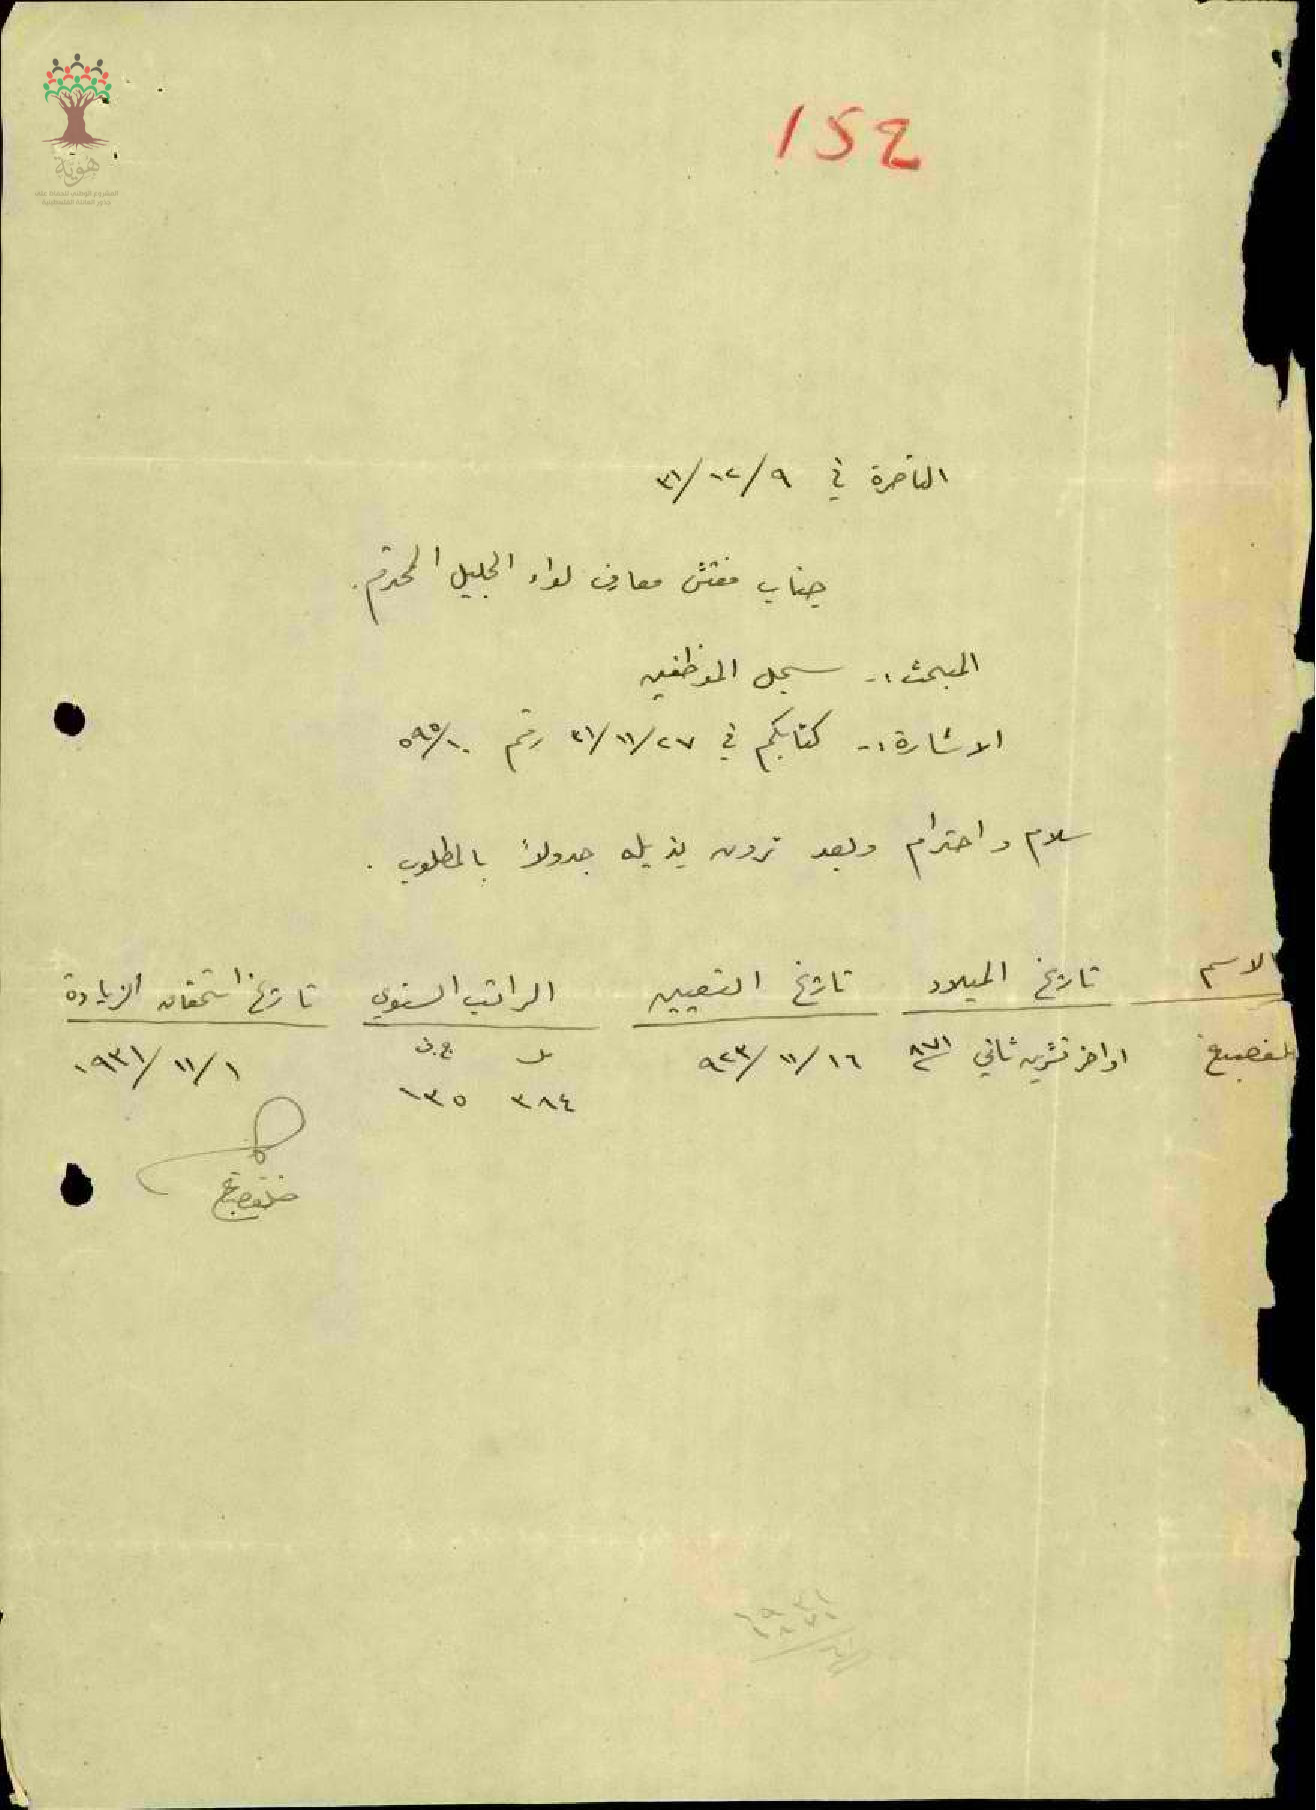 هوية
المشروع الوطني للحفاظ على
جذور العائلة الفلسطينية
152
الناصرة في ٩/١٢/٣١
جناب مفتش معارف لواء الجليل المحترم.
المبحث:- سجل الموظفين
الاشارة:- كتابكم في ٢٧/١١/٣١ رقم ٥٩٥/١٠
سلام واحترام وبعد ترون بذيله جدولاً بالمطلوب.
الاسم تاريخ الميلاد تاريخ التعيين الراتب السنوي تاريخ استحقاق الزيادة
اواخر تشرين ثاني ٨٧١ ١٦/١١/٩٢٣ مل ج.ف ١/١١/١٩٣١
٣٨٤ ١٣٥